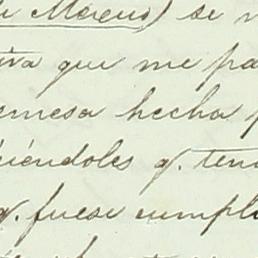 Moreno) se
que me pa
mesa hecha
iéndoles q. ten
q. fuese cumpl